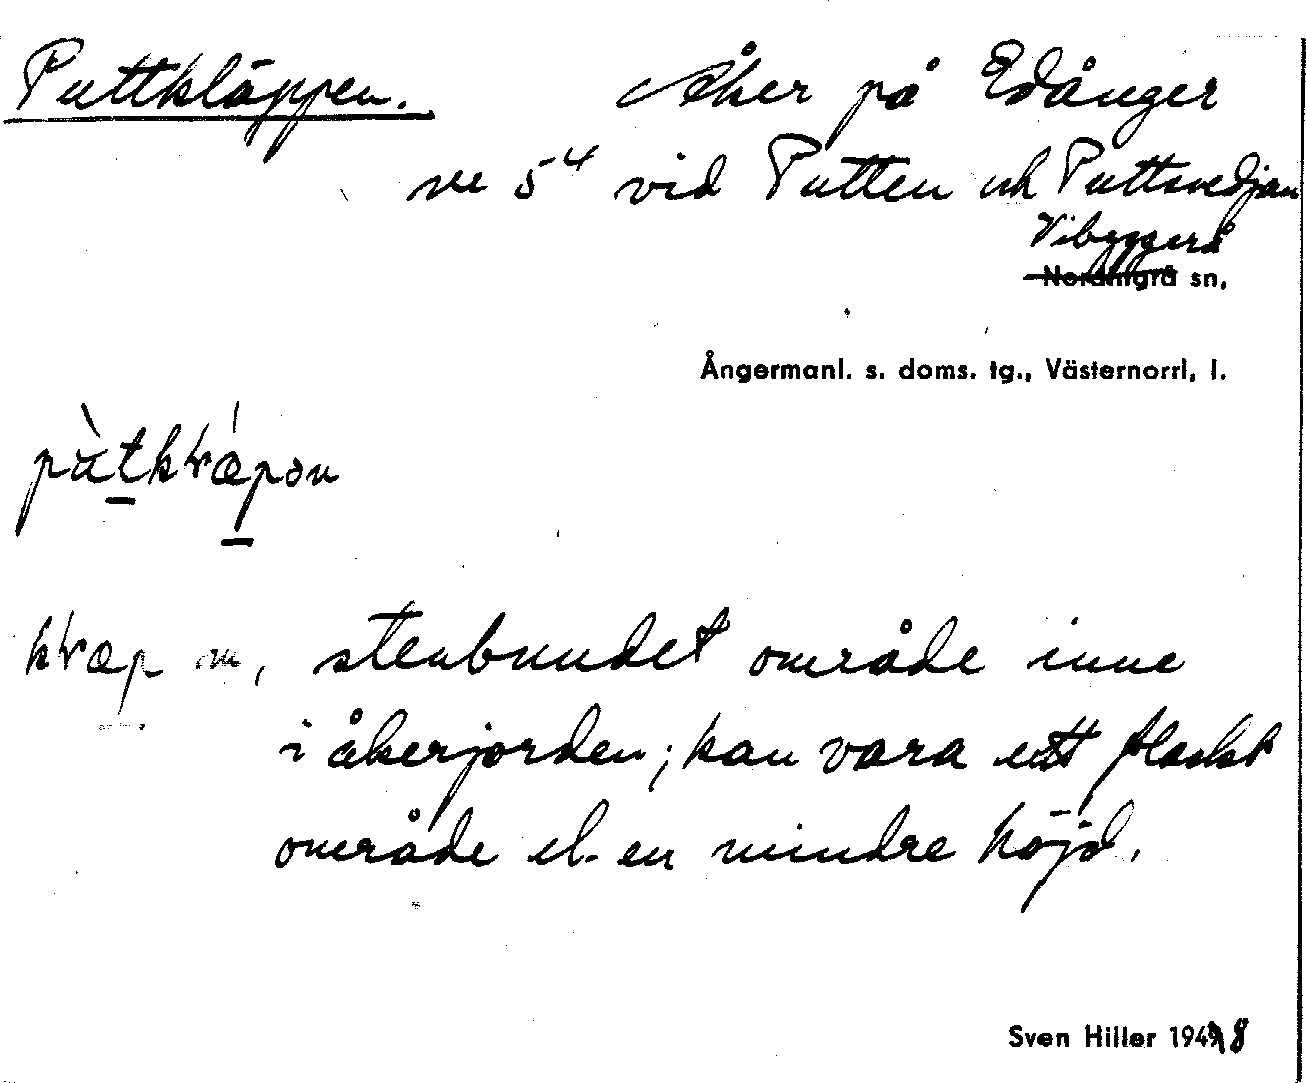 Puttkläppen. Åker på Edånger
nr 5⁴ vid Putten och Puttsvedjan
Vibyggerå
Nordingrå sn,
Ångermanl. s. doms. tg., Västernorrl, l.
m, stenbundet område inne
i åkerjorden; kan vara ett flackt
område el. en mindre höjd.
Sven Hiller 1948